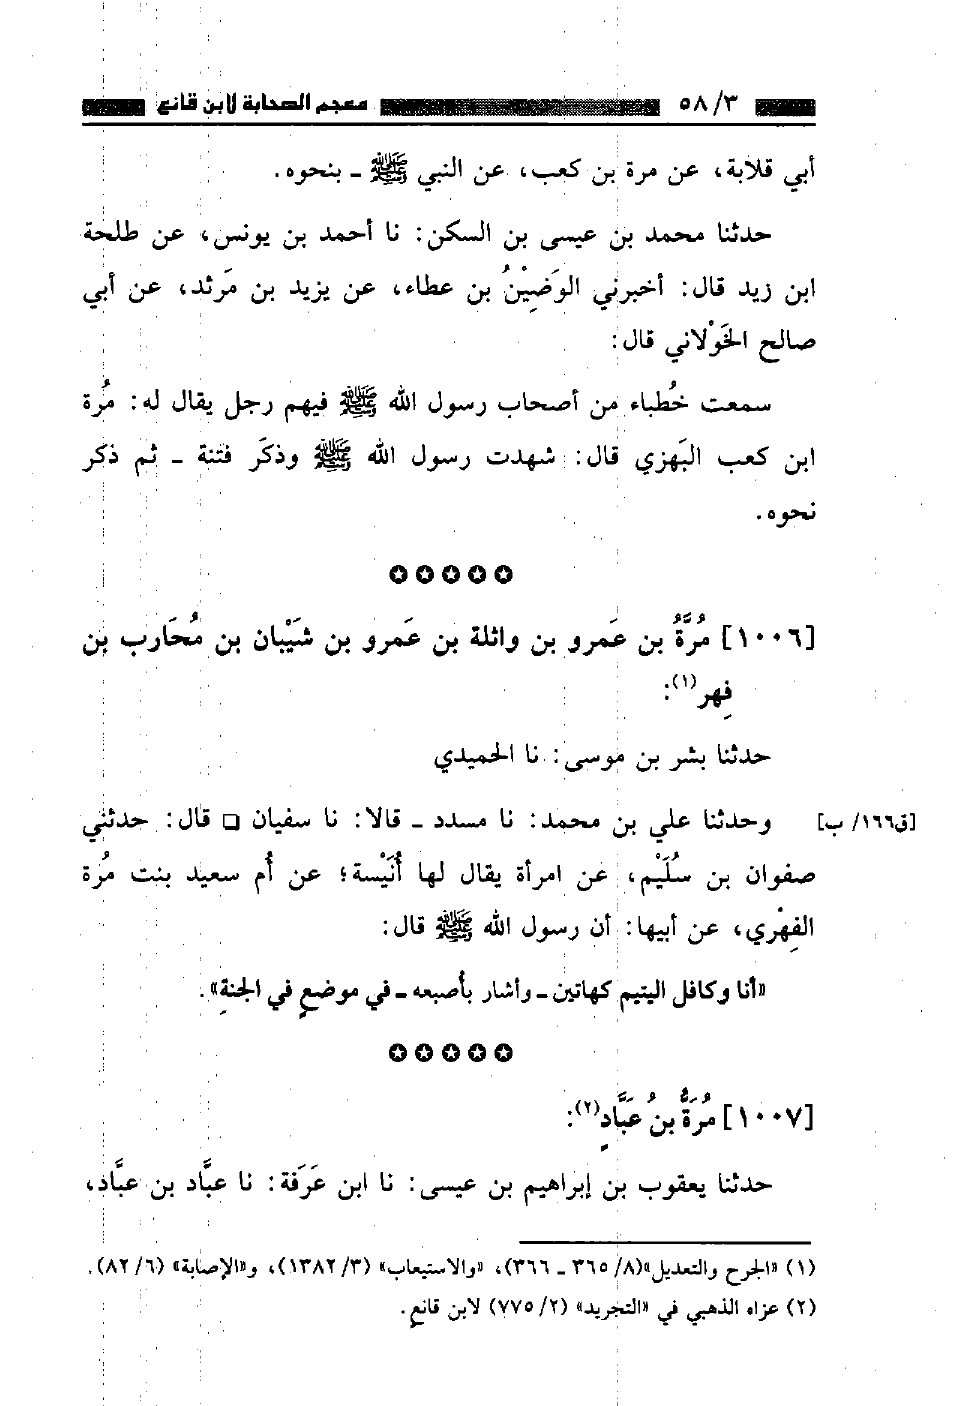 ٥٨/٣ معجم الصحابة لابن قانع
أبي قلابة، عن مرة بن كعب، عن النبي ﷺ ـ بنحوه.
حدثنا محمد بن عيسى بن السكن: نا أحمد بن يونس، عن طلحة
ابن زيد قال: أخبرني الوَضِيْنُ بن عطاء، عن يزيد بن مَرثد، عن أبي
صالح الخَوْلاني قال:
سمعت خُطباء من أصحاب رسول الله ﷺ فيهم رجل يقال له: مُرة
ابن كعب البَهزي قال: شهدت رسول الله ﷺ وذكَر فتنة ـ ثم ذكر
نحوه.
✪✪✪✪✪
[١٠٠٦] مُرَّةُ بن عَمرو بن واثلة بن عَمرو بن شَيْبان بن مُحَارب بن
فِهرِ(١):
حدثنا بشر بن موسى: نا الحميدي
[ق١٦٦/ ب] وحدثنا علي بن محمد: نا مسدد ـ قالا: نا سفيان □ قال: حدثني
صفوان بن سُلَيْم، عن امرأة يقال لها أُنَيْسة؛ عن أُم سعيد بنت مُرة
الفِهْري، عن أبيها: أن رسول الله ﷺ قال:
«أنا وكافل اليتيم كهاتين ـ وأشار بأصبعه ـ في موضعٍ في الجنةِ».
✪✪✪✪✪
[١٠٠٧] مُرَةُّ بنُ عَبَّادٍ(٢):
حدثنا يعقوب بن إبراهيم بن عيسى: نا ابن عَرَفة: نا عبَّاد بن عبَّاد،
(١) «الجرح والتعديل»(٨/ ٣٦٥ ـ ٣٦٦)، «والاستيعاب» (٣/ ١٣٨٢)، و«الإصابة» (٦/ ٨٢).
(٢) عزاه الذهبي في «التجريد» (٢/ ٧٧٥) لابن قانع.